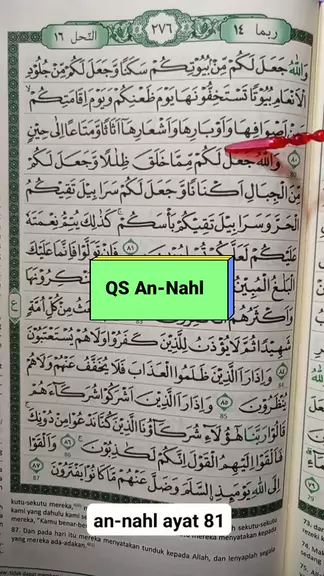 ربما ١٤
٢٧٦
النحل ١٦
وَاللّٰهُ جَعَلَ لَكُمْ مِّنْۢ بُيُوْتِكُمْ سَكَنًا وَّجَعَلَ لَكُمْ مِّنْ جُلُوْدِ
الْاَنْعَامِ بُيُوْتًا تَسْتَخِفُّوْنَهَا يَوْمَ ظَعْنِكُمْ وَيَوْمَ اِقَامَتِكُمْ ۙ
وَمِنْ اَصْوَافِهَا وَاَوْبَارِهَا وَاَشْعَارِهَآ اَثَاثًا وَّمَتَاعًا اِلٰى حِيْنٍ
٨٠ وَاللّٰهُ جَعَلَ لَكُمْ مِّمَّا خَلَقَ ظِلٰلًا وَّجَعَلَ لَكُمْ
مِّنَ الْجِبَالِ اَكْنَانًا وَّجَعَلَ لَكُمْ سَرَابِيْلَ تَقِيْكُمُ
الْحَرَّ وَسَرَابِيْلَ تَقِيْكُمْ بَأْسَكُمْ ۚ كَذٰلِكَ يُتِمُّ نِعْمَتَهٗ
عَلَيْكُمْ لَعَلَّكُمْ تُسْلِمُوْنَ ٨١ فَاِنْ تَوَلَّوْا فَاِنَّمَا عَلَيْكَ
الْبَلٰغُ الْمُبِيْنُ
وَاَكْثَرُهُمُ مِنْ كُلِّ اُمَّةٍ
شَهِيْدًا ثُمَّ لَا يُؤْذَنُ لِلَّذِيْنَ كَفَرُوْا وَلَا هُمْ يُسْتَعْتَبُوْنَ
٨٤ وَاِذَا رَاَ الَّذِيْنَ ظَلَمُوا الْعَذَابَ فَلَا يُخَفَّفُ عَنْهُمْ وَلَا هُمْ
يُنْظَرُوْنَ ٨٥ وَاِذَا رَاَ الَّذِيْنَ اَشْرَكُوْا شُرَكَاۤءَهُمْ
قَالُوْا رَبَّنَا هٰٓؤُلَاۤءِ شُرَكَاۤؤُنَا الَّذِيْنَ كُنَّا نَدْعُوْا مِنْ دُوْنِكَ ۚ
فَاَلْقَوْا اِلَيْهِمُ الْقَوْلَ اِنَّكُمْ لَكٰذِبُوْنَ ۚ ٨٦ وَاَلْقَوْا
اِلَى اللّٰهِ يَوْمَىِٕذِ ِۨالسَّلَمَ وَضَلَّ عَنْهُمْ مَّا كَانُوْا يَفْتَرُوْنَ ٨٧
QS An-Nahl
kutu-sekutu mereka,
kami yang dahulu kami
mereka, "Kamu benar-ben
87. Dan pada hari itu mereka menyatakan tunduk kepada Allah, dan lenyaplah segala
yang mereka ada-adakan.
an-nahl ayat 81